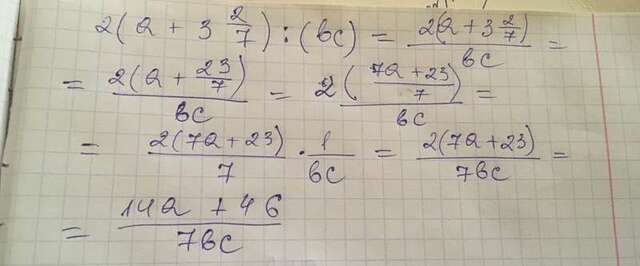 2(a + 3 2/7) : (bc) = 2(a + 3 2/7)/bc =
= 2(a + 23/7)/bc = 2((7a + 23)/7)/bc =
= 2(7a + 23)/7 · 1/bc = 2(7a + 23)/7bc =
= 14a + 46/7bc